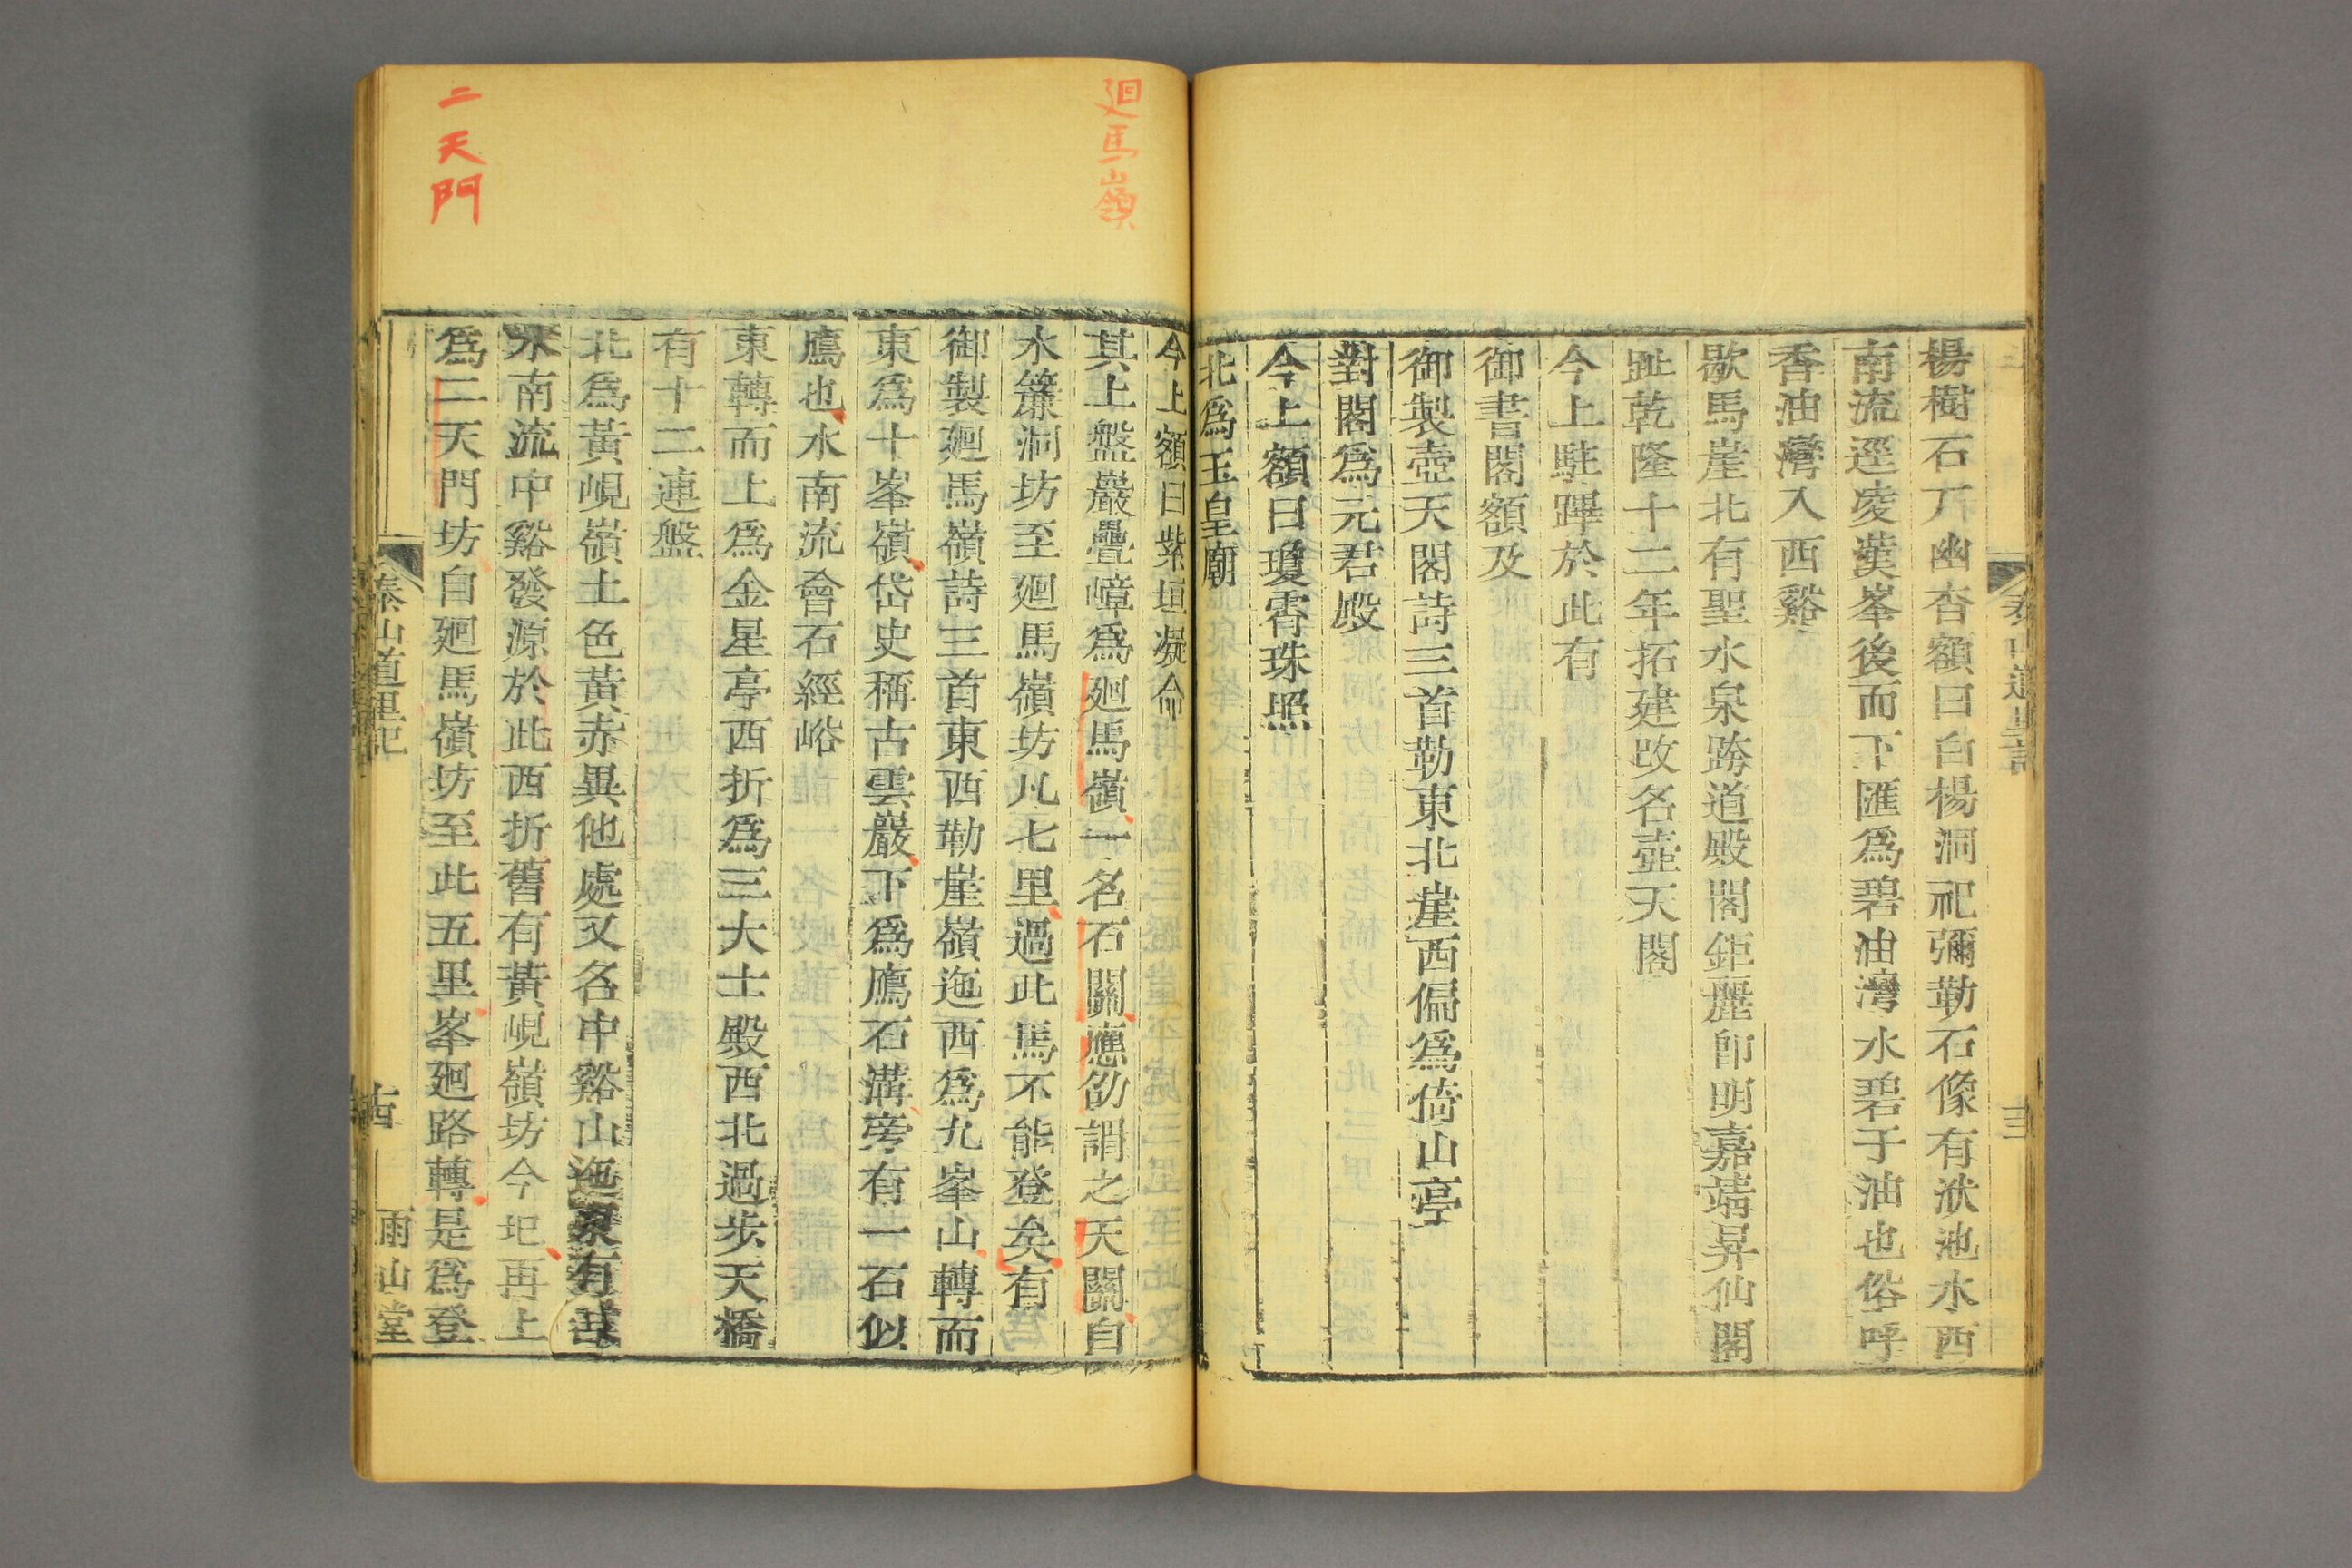 楊樹石丌幽杳額曰白楊洞祀彌勒石像有洑池水西
南流逕凌漢峯後而下匯爲碧油灣水碧于油也俗呼
香油灣入西谿
歇馬崖北有聖水泉跨道殿閣鉅麗卽明嘉靖昇仙閣
趾乾隆十二年拓建改名壺天閣
今上駐蹕於此有
御書閣額及
御製壺天閣詩三首勒東北崖西偏爲倚山亭
對閣爲元君殿
今上額曰瓊霄珠照
北爲玉皇廟
今上額曰紫垣凝命
其上盤巖疊嶂爲廻馬嶺一名石關應劭謂之天關自
水簾洞坊至廻馬嶺坊凡七里過此馬不能登矣有
御製廻馬嶺詩三首東西勒崖嶺迤西爲九峯山轉而
東爲十峯嶺岱史稱古雲巖下爲鷹石溝旁有一石似
鷹也水南流會石經峪
東轉而上爲金星亭西折爲三大士殿西北過步天橋
有十二連盤
北爲黃峴嶺土色黃赤異他處又名中谿山迤
水南流中谿發源於此西折舊有黃峴嶺坊今圮再上
爲二天門坊自廻馬嶺坊至此五里峯廻路轉是爲登
泰山道里記
雨山堂
廻馬嶺
二天門